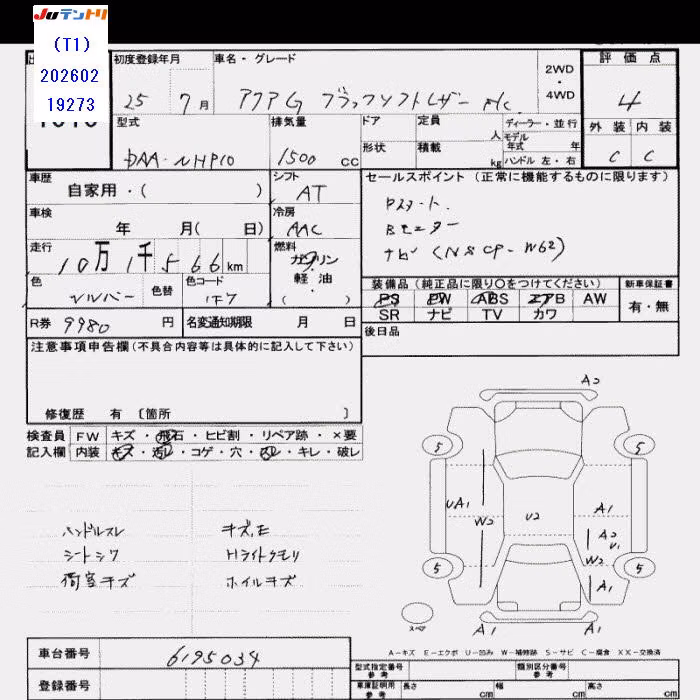 Juテントリ
(T1)
202602
19273
初度登録年月 車名・グレード 2WD・4WD 評価点
25 7月 アクア G ブラックソフトレザー F/C 4
型式 排気量 ドア 定員 人 ディーラー・並行 外装 内装
モデル年式 年
DAA-NHP10 1500 cc 形状 積載 kg ハンドル 左・右 C C
車歴 シフト セールスポイント(正常に機能するものに限ります)
自家用・( ) AT
Pスタート
車検 冷房 Bモニター
年 月( 日) AAC ナビ (NSCP-W62)
走行 燃料
10万1千566km ガソリン・軽油・( )
色 色替 色コード 装備品(純正品に限り○をつけてください) 新車保証書
シルバー 1F7 PS PW ABS エアB AW 有・無
SR ナビ TV カワ
R券 9980 円 名変通知期限 月 日 後日品
注意事項申告欄(不具合内容等は具体的に記入して下さい)
修復歴 有 〔箇所 〕
検査員 FW キズ・飛石・ヒビ割・リペア跡・×要
記入欄 内装 キズ・汚レ・コゲ・穴・スレ・キレ・破レ
ハンドルスレ キズ,E
シートシワ Hライトクモリ
荷室キズ ホイルキズ
A2
5 5
UA1 A1
W2 U2 A2
U1
W2
5 5
A1
スペア
A1 A1
A-キズ E-エクボ U-凹み W-補修跡 S-サビ C-腐食 XX-交換済
車台番号 6195034 型式指定番号 参考 類別区分番号 参考
登録番号 車庫証明用 参考 長さ cm 幅 cm 高さ cm